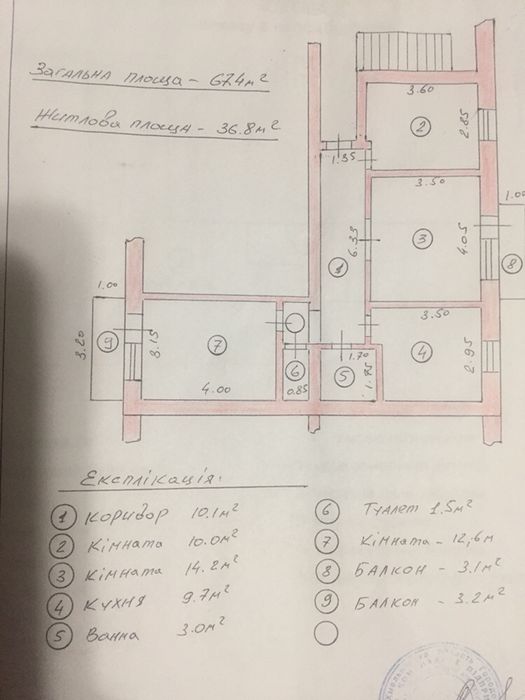 Загальна площа - 67.4 м²
Житлова площа - 36.8 м²
3.60
2
2.85
1.35
3.50
1.00
6.33
3
4.05
1
8
1.00
3.50
3.20
9
3.15
7
4
2.95
1.70
6
5
1.75
4.00
0.85
Експлікація:
1 Коридор 10.1 м²
2 Кімната 10.0 м²
3 Кімната 14.2 м²
4 Кухня 9.7 м²
5 Ванна 3.0 м²
6 Туалет 1.5 м²
7 Кімната - 12,6 м
8 Балкон - 3.1 м²
9 Балкон - 3.2 м²